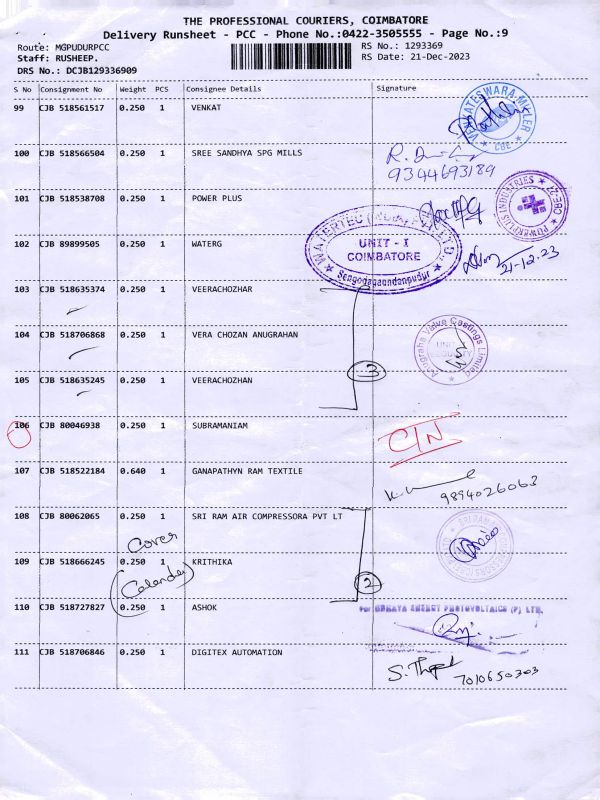 THE PROFESSIONAL COURIERS, COIMBATORE
Delivery Runsheet - PCC - Phone No.:0422-3505555 - Page No.:9
Route: MGPUDURPCC RS No.: 1293369
Staff: RUSHEEP. RS Date: 21-Dec-2023
DRS No.: DCJB129336909
S No Consignment No Weight PCS Consignee Details Signature
99 CJB 518561517 0.250 1 VENKAT
100 CJB 518566504 0.250 1 SREE SANDHYA SPG MILLS
9344693189
101 CJB 518538708 0.250 1 POWER PLUS
POWERPLUS INDUSTRIES
WATERTEC (INDIA) PVT. LTD.
UNIT - I
COIMBATORE
Sengodagoundanpudur
102 CJB 89899505 0.250 1 WATERG
21-12.23
103 CJB 518635374 0.250 1 VEERACHOZHAR
104 CJB 518706868 0.250 1 VERA CHOZAN ANUGRAHAN
Anugraha Valve Castings Limited
3
105 CJB 518635245 0.250 1 VEERACHOZHAN
106 CJB 80046938 0.250 1 SUBRAMANIAM
C/N
107 CJB 518522184 0.640 1 GANAPATHYN RAM TEXTILE
9894026063
108 CJB 80062065 0.250 1 SRI RAM AIR COMPRESSORA PVT LT
Cover
109 CJB 518666245 0.250 1 KRITHIKA
(Calender)
2
110 CJB 518727827 0.250 1 ASHOK
PHOTOVOLTAICS (P) LTD.
111 CJB 518706846 0.250 1 DIGITEX AUTOMATION
7010650303